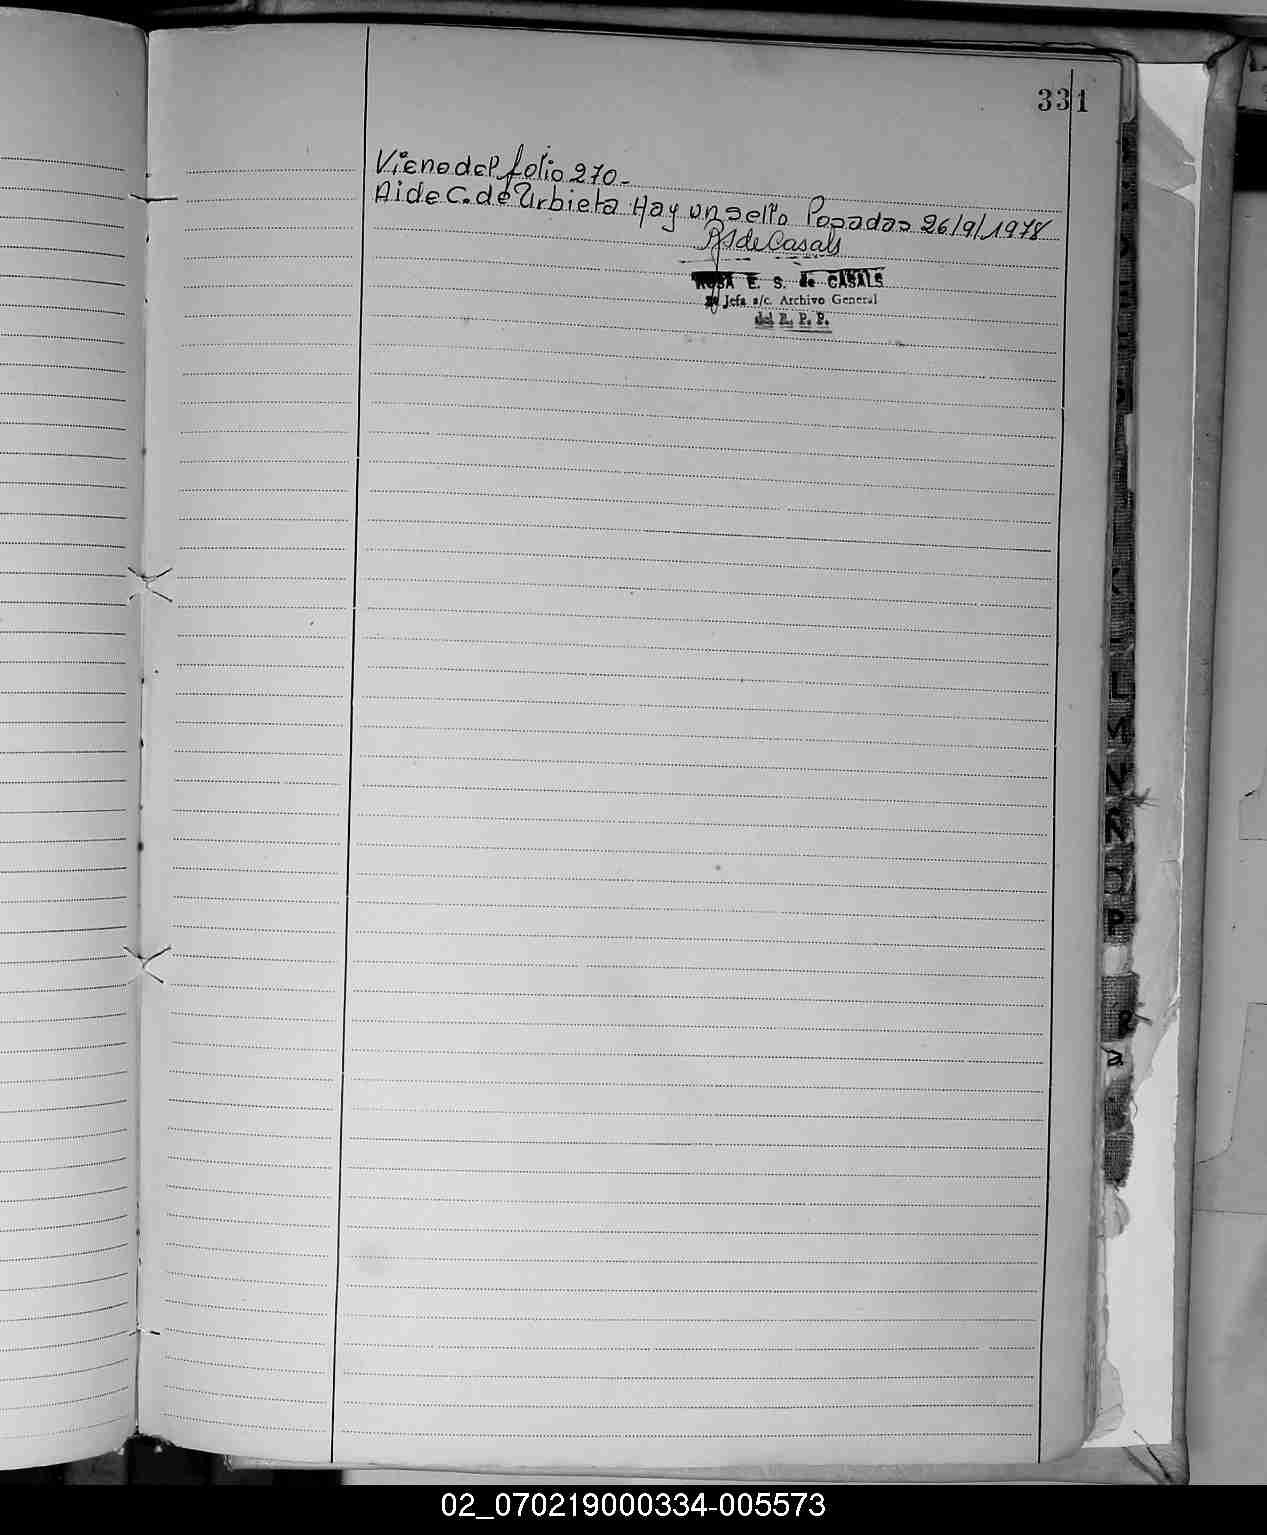 331
Viene del folio 270_
Aide C. de Urbieta. Hay un sello Posadas 26/9/1978
RSdeCasals
ROSA E. S. de CASALS
Jefa a/c. Archivo General
del R. P. P.
L
M
N
Ñ
O
P
R
02_070219000334-005573